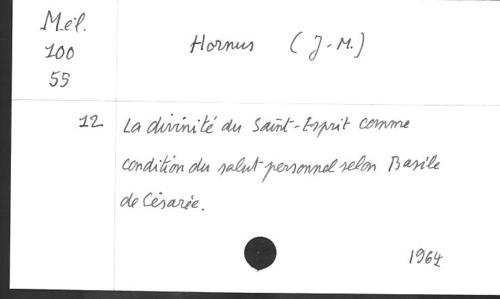 Mél.
100
55
Hornus (J-M.)
12 La divinité du Saint-Esprit comme
condition du salut personnel selon Basile
de Césarée.
1964